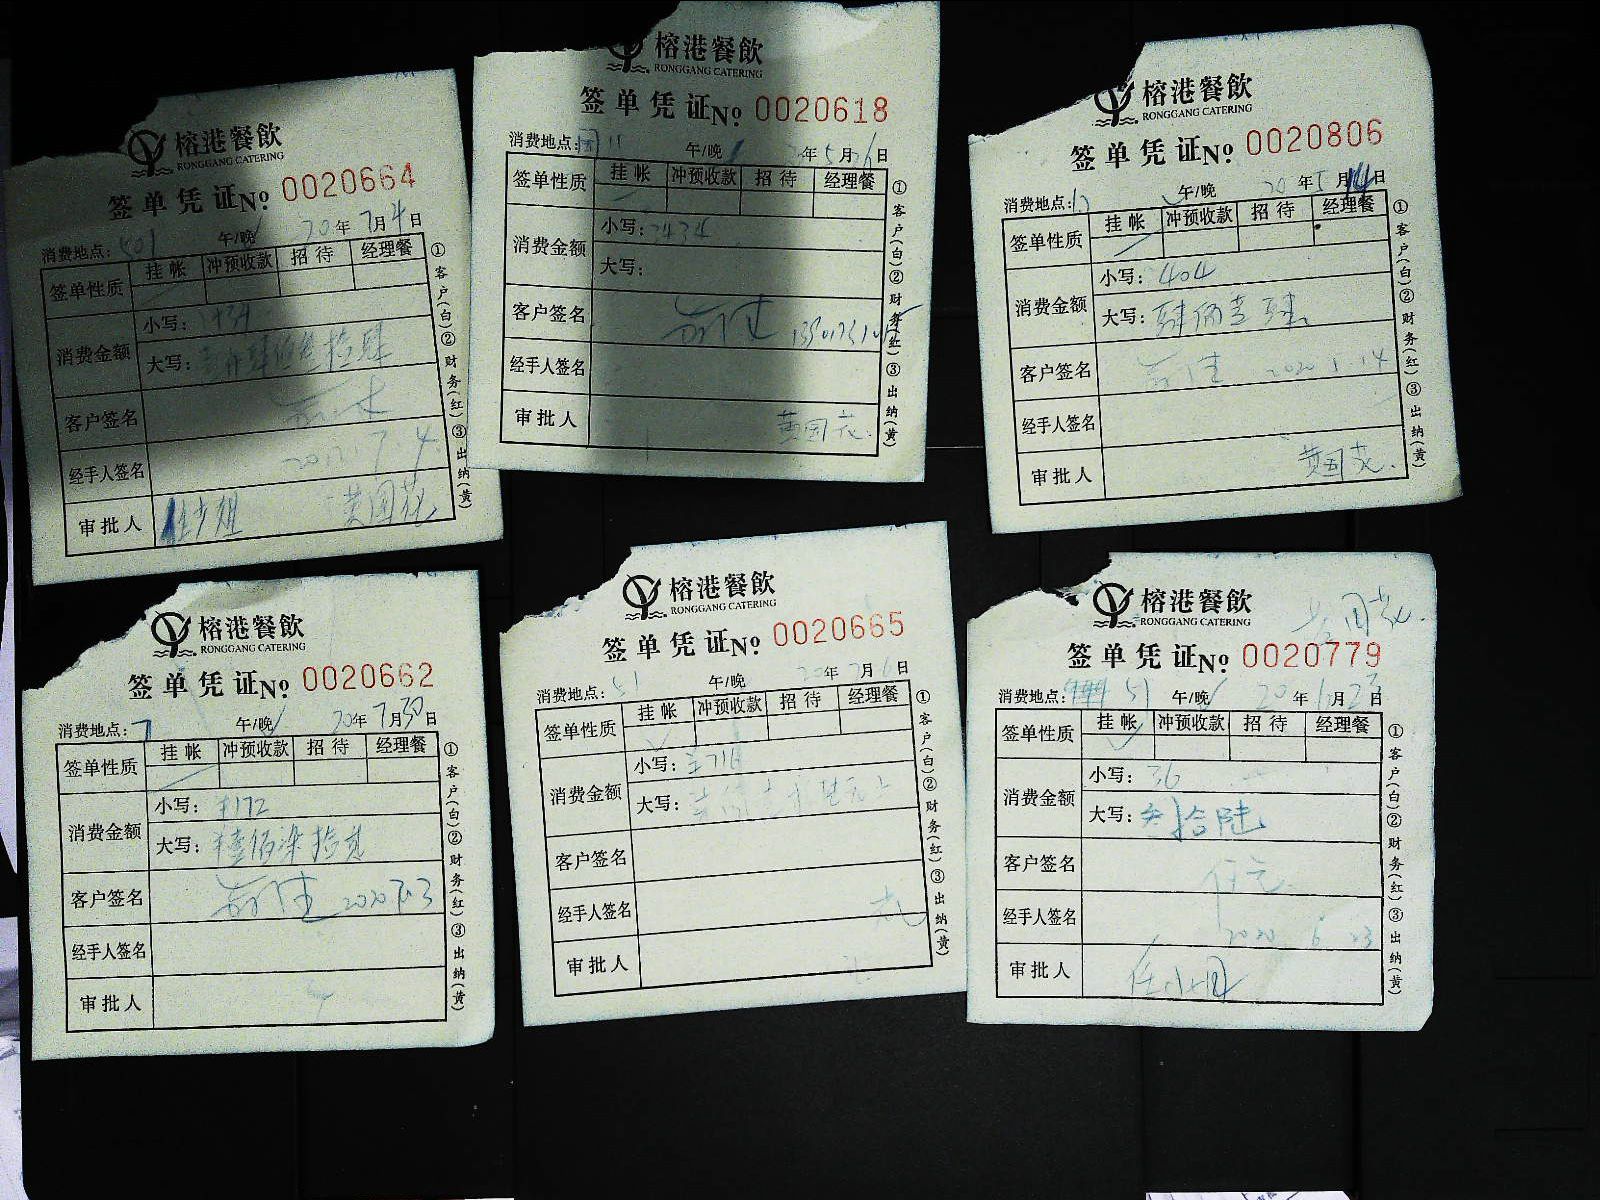 榕港餐飲
RONGGANG CATERING
签单凭证No 0020664
消费地点: 午/晚 20年7月4日
签单性质 挂帐 冲预收款 招待 经理餐
消费金额 小写:
大写:
客户签名
经手人签名
审批人 黄国花
①客户(白)②财务(红)③出纳(黄)
榕港餐飲
RONGGANG CATERING
签单凭证No 0020618
消费地点: 午/晚 年5月26日
签单性质 挂帐 冲预收款 招待 经理餐
消费金额 小写: 2434
大写:
客户签名
经手人签名
审批人 黄国花
①客户(白)②财务(红)③出纳(黄)
榕港餐飲
RONGGANG CATERING
签单凭证No 0020806
消费地点: 午/晚 20年 月14日
签单性质 挂帐 冲预收款 招待 经理餐
消费金额 小写: 404
大写: 肆佰零肆
客户签名 2020.1.14
经手人签名
审批人 黄国花
①客户(白)②财务(红)③出纳(黄)
榕港餐飲
RONGGANG CATERING
签单凭证No 0020662
消费地点: 7 午/晚 20年7月30日
签单性质 挂帐 冲预收款 招待 经理餐
消费金额 小写: ¥172
大写: 壹佰柒拾
客户签名
经手人签名
审批人
①客户(白)②财务(红)③出纳(黄)
榕港餐飲
RONGGANG CATERING
签单凭证No 0020665
消费地点: 51 午/晚 20年7月6日
签单性质 挂帐 冲预收款 招待 经理餐
消费金额 小写:
大写:
客户签名
经手人签名
审批人
①客户(白)②财务(红)③出纳(黄)
榕港餐飲
RONGGANG CATERING
签单凭证No 0020779
消费地点: 51 午/晚 20年 月23日
签单性质 挂帐 冲预收款 招待 经理餐
消费金额 小写: 36
大写: 叁拾陆
客户签名
经手人签名 2020 6 23
审批人
①客户(白)②财务(红)③出纳(黄)